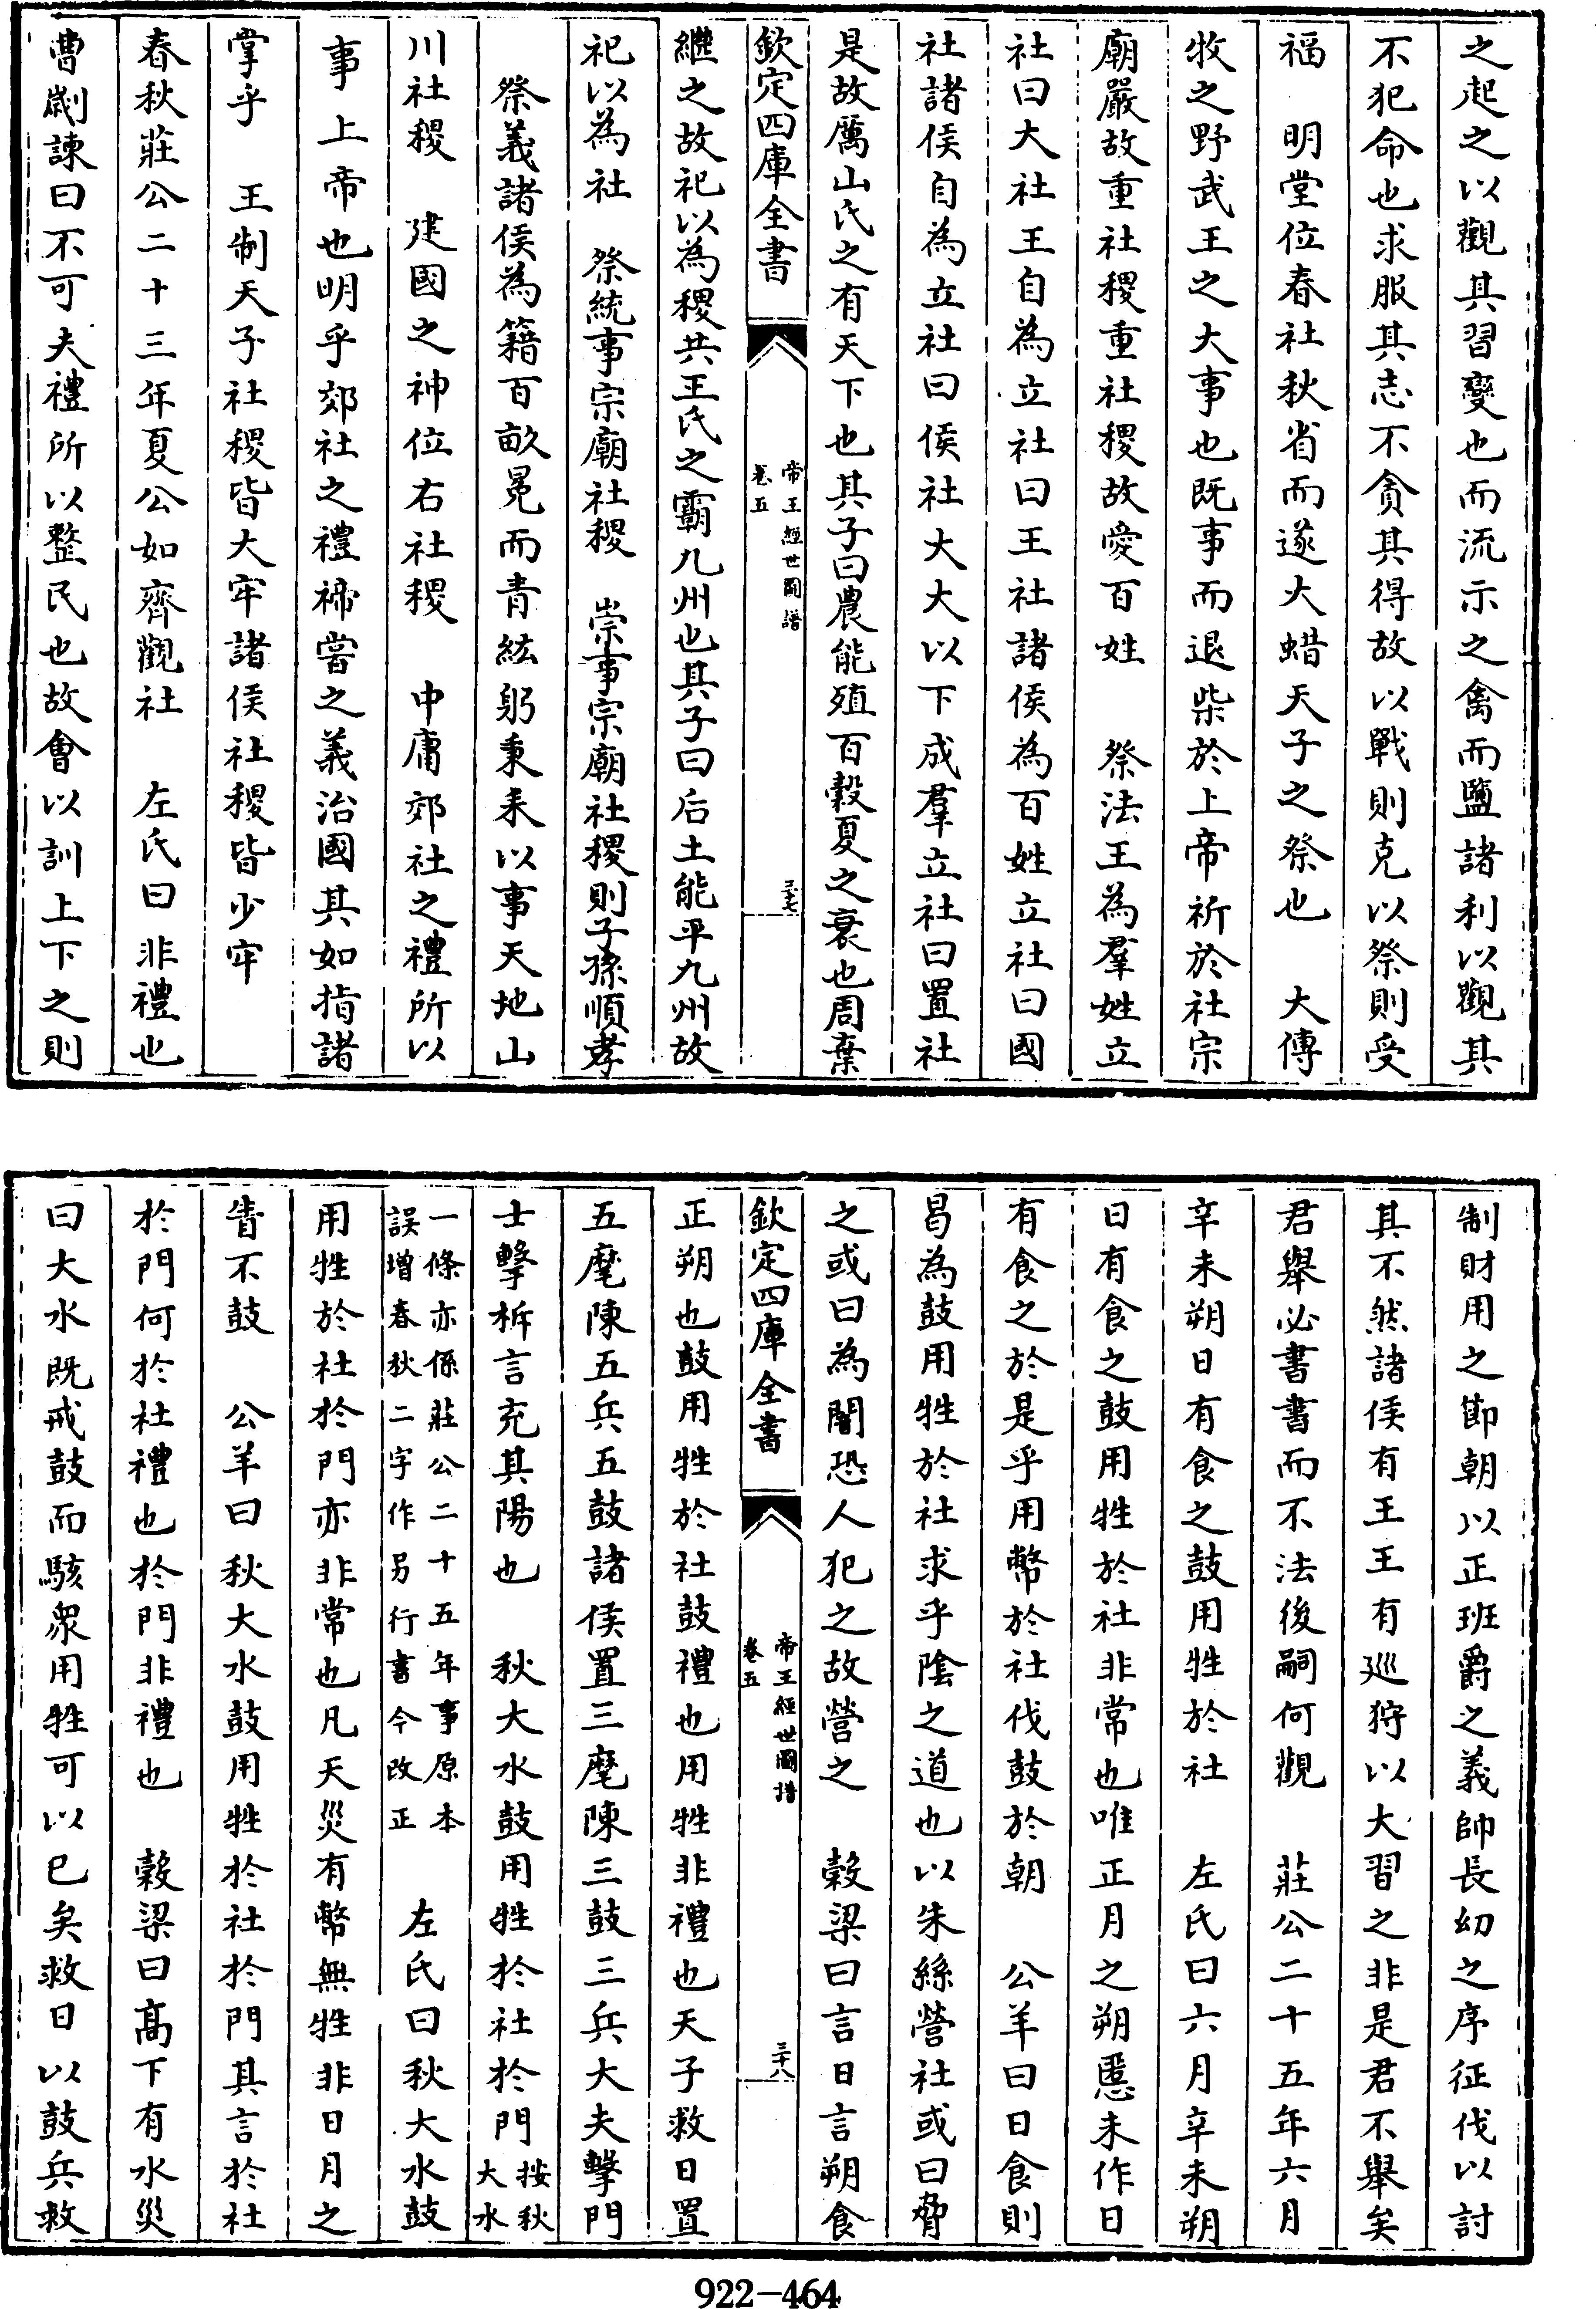 之起之以觀其習變也而流示之禽而鹽諸利以觀其
不犯命也求服其志不貪其得故以戰則克以祭則受
福　明堂位春社秋省而遂大蜡天子之祭也　大傳
牧之野武王之大事也既事而退柴於上帝祈於社宗
廟嚴故重社稷重社稷故愛百姓　祭法王為羣姓立
社曰大社王自為立社曰王社諸侯為百姓立社曰國
社諸侯自為立社曰侯社大夫以下成羣立社曰置社
是故厲山氏之有天下也其子曰農能殖百穀夏之衰也周棄
欽定四庫全書
帝王經世圖譜
卷五
三十七
繼之故祀以為稷共工氏之霸九州也其子曰后土能平九州故
祀以為社　祭統事宗廟社稷　崇事宗廟社稷則子孫順孝
祭義諸侯為籍百畝冕而青紘躬秉耒以事天地山
川社稷　建國之神位右社稷　中庸郊社之禮所以
事上帝也明乎郊社之禮禘嘗之義治國其如指諸
掌乎　王制天子社稷皆大牢諸侯社稷皆少牢
春秋莊公二十三年夏公如齊觀社　左氏曰非禮也
曹劌諫曰不可夫禮所以整民也故會以訓上下之則
制財用之節朝以正班爵之義帥長幼之序征伐以討
其不然諸侯有王王有巡狩以大習之非是君不舉矣
君舉必書書而不法後嗣何觀　莊公二十五年六月
辛未朔日有食之鼓用牲於社　左氏曰六月辛未朔
日有食之鼓用牲於社非常也唯正月之朔慝未作日
有食之於是乎用幣於社伐鼓於朝　公羊曰日食則
曷為鼓用牲於社求乎陰之道也以朱絲營社或曰脅
之或曰為闇恐人犯之故營之　穀梁曰言日言朔食
欽定四庫全書
帝王經世圖譜
卷五
三十八
正朔也鼓用牲於社鼓禮也用牲非禮也天子救日置
五麾陳五兵五鼓諸侯置三麾陳三鼓三兵大夫擊門
士擊柝言充其陽也　秋大水鼓用牲於社於門按秋大水
一條亦係莊公二十五年事原本誤增春秋二字作另行書今改正　左氏曰秋大水鼓
用牲於社於門亦非常也凡天災有幣無牲非日月之
眚不鼓　公羊曰秋大水鼓用牲於社於門其言於社
於門何於社禮也於門非禮也　穀梁曰高下有水災
曰大水既戒鼓而駭衆用牲可以已矣救日以鼓兵救
922-464